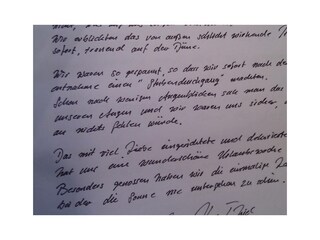 Wir erblickten das von außen schlicht wirkende
sofort, tronend auf der Düne.
Wir waren so gespannt, so dass wir sofort nach der
entnahme einen "Stubendurchgang" machten.
Schon nach wenigen Augenblicken sah man das
unseren Augen und wir waren uns sicher,
an nichts fehlen würde.
Das mit viel Liebe eingerichtete und dekorierte
hat uns eine wunderschöne Urlaubswoche
Besonders genossen haben wir die einmalige
bei der die Sonne nie unterzugehen